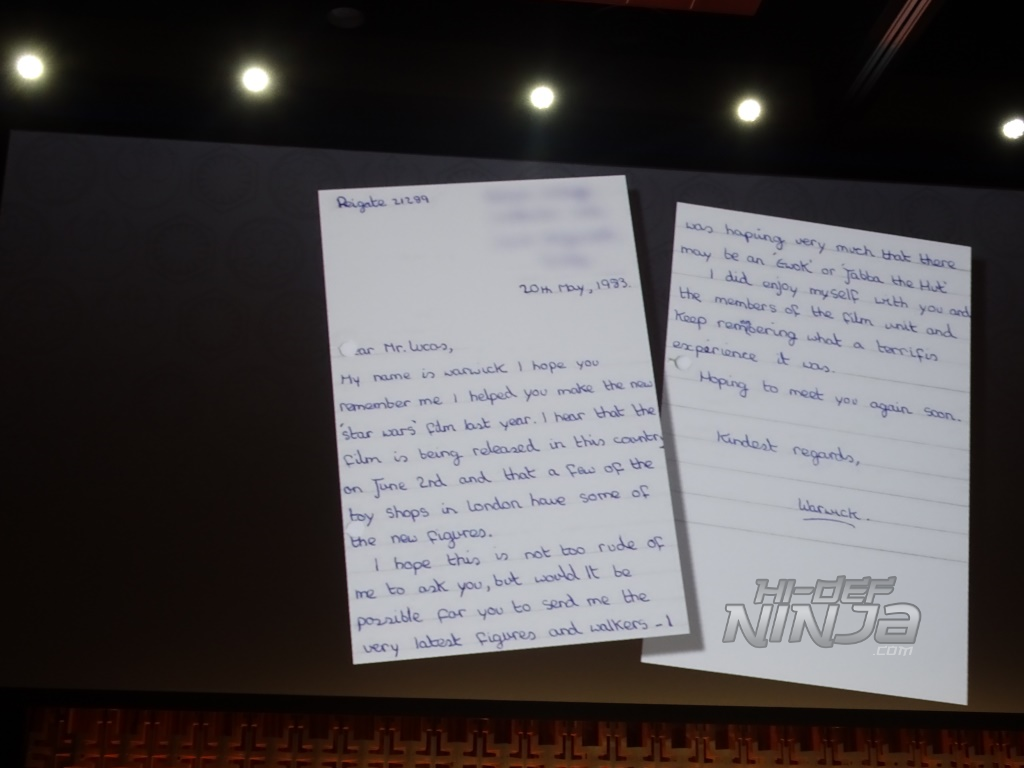 Reigate 21299
20th May, 1983.
ear Mr. Lucas,
My name is warwick I hope you
remember me I helped you make the new
'star wars' film last year. I hear that the
film is being released in this country
on June 2nd and that a few of the
toy shops in London have some of
the new figures.
I hope this is not too rude of
me to ask you, but would it be
possible for you to send me the
very latest figures and walkers - I
was hopiing very much that there
may be an 'Ewok' or 'Jabba the Hut'
I did enjoy myself with you and
the members of the film unit and
keep remembering what a terrific
experience it was.
Hoping to meet you again soon.
Kindest regards,
Warwick.
HI-DEF
NINJA
.com